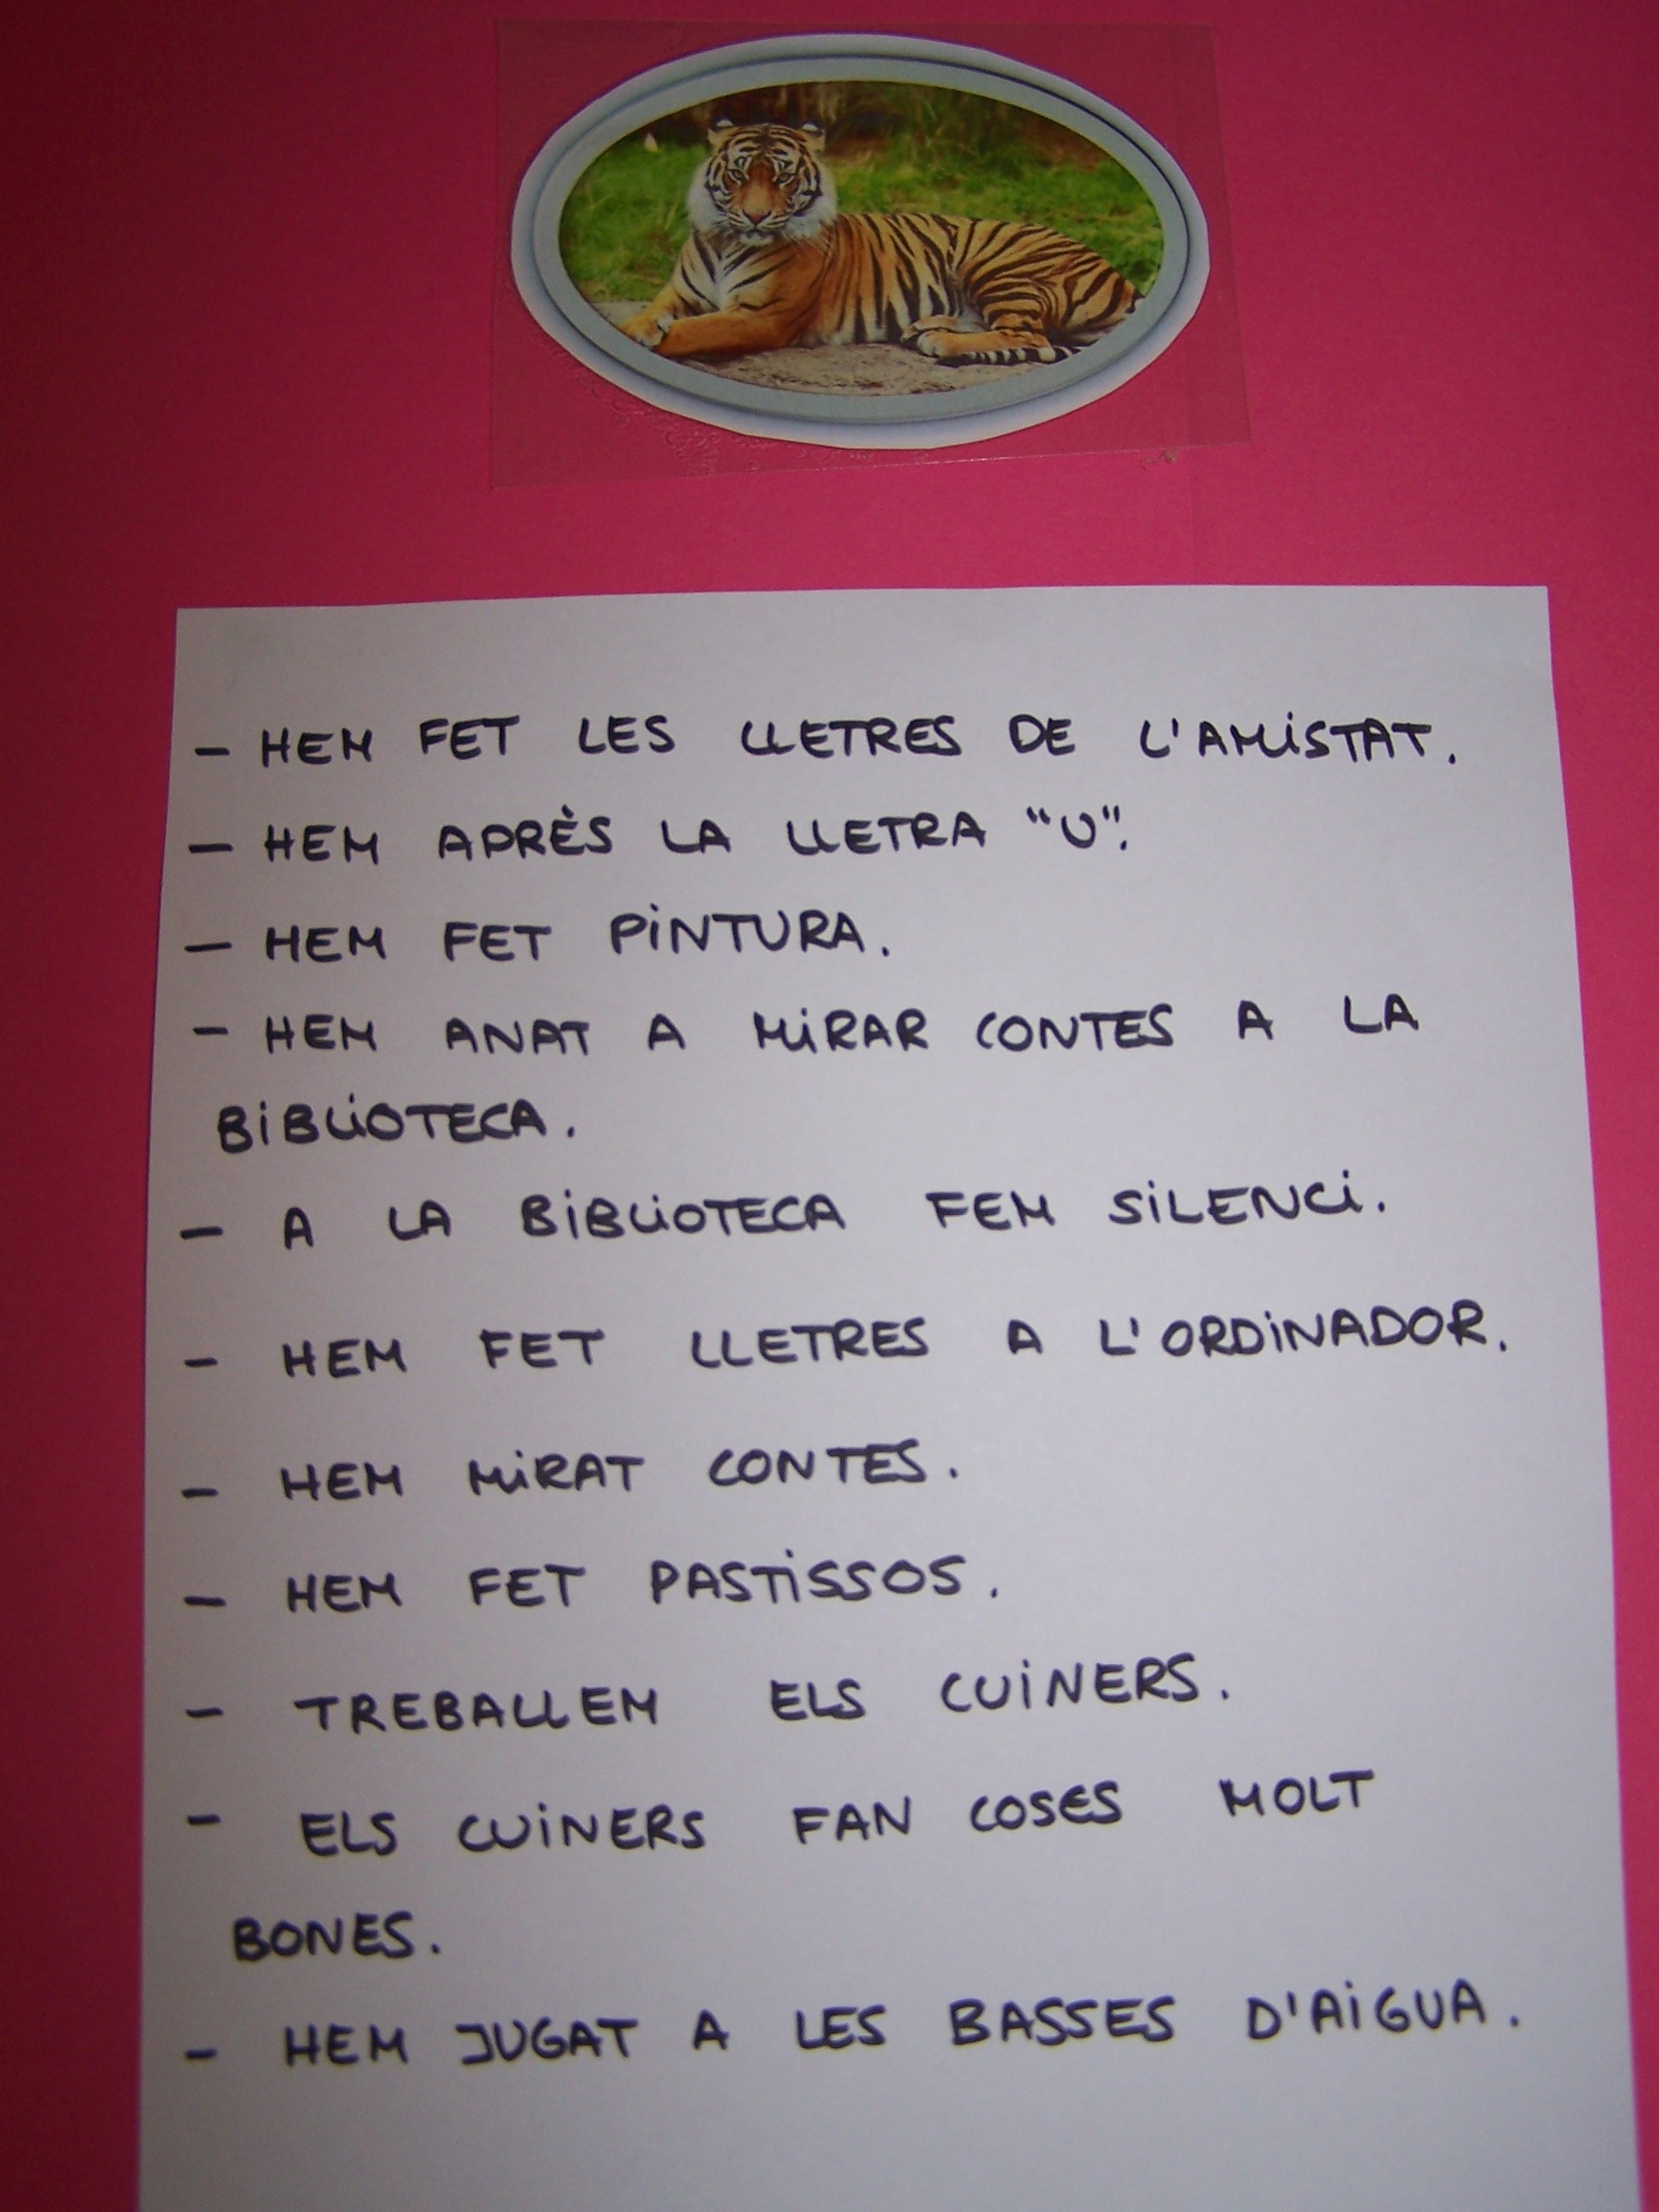 - HEM FET LES LLETRES DE L'AMiSTAT.
- HEM APRÈS LA LLETRA "U".
- HEM FET PiNTURA.
- HEM ANAT A MiRAR CONTES A LA
BiBLiOTECA.
- A LA BiBLiOTECA FEM SiLENCi.
- HEM FET LLETRES A L'ORDiNADOR.
- HEM MiRAT CONTES.
- HEM FET PASTiSSOS.
- TREBALLEM ELS CUiNERS.
- ELS CUiNERS FAN COSES MOLT
BONES.
- HEM JUGAT A LES BASSES D'AiGUA.